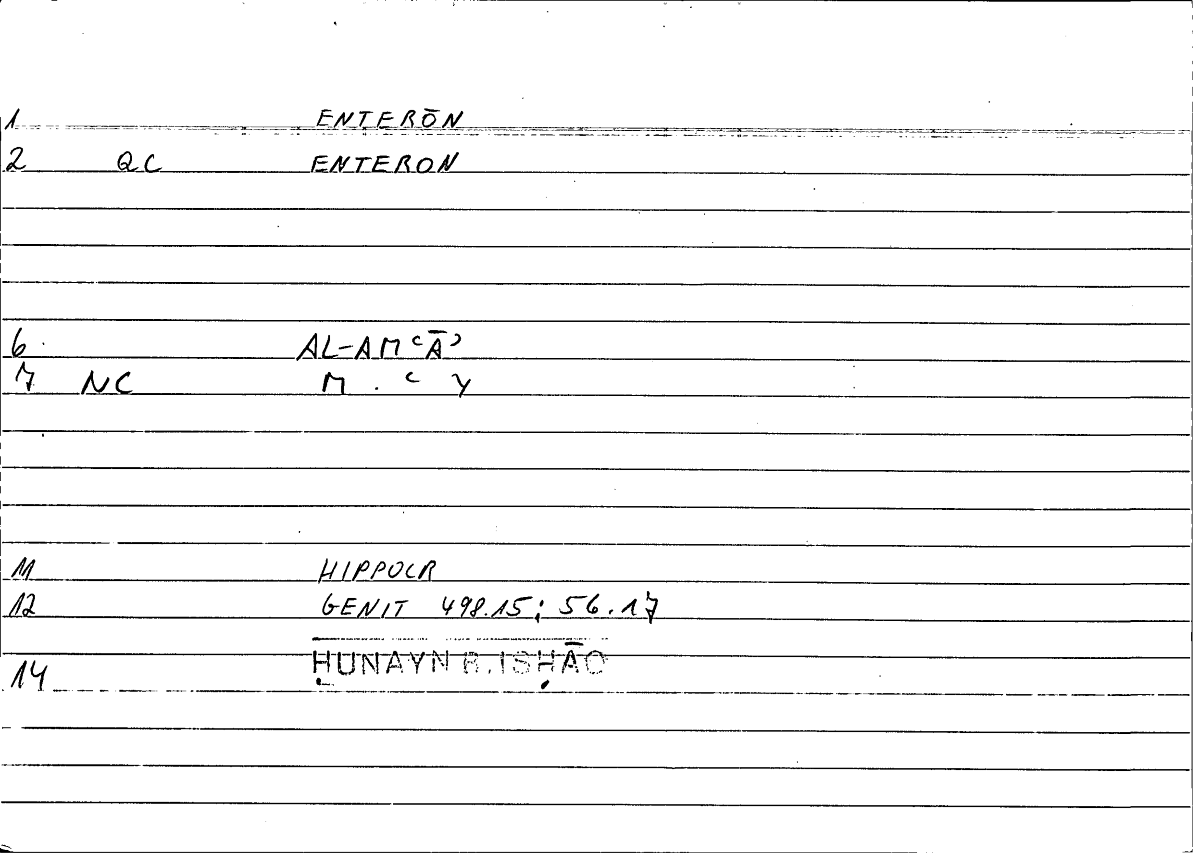 1 ENTERŌN
2 QC ENTERON
6 AL-AMʿĀʾ
7 NC M . ʿ Y
11 HIPPOCR
12 GENIT 498.15; 56.17
14 ḤUNAYN B. ISḤĀQ